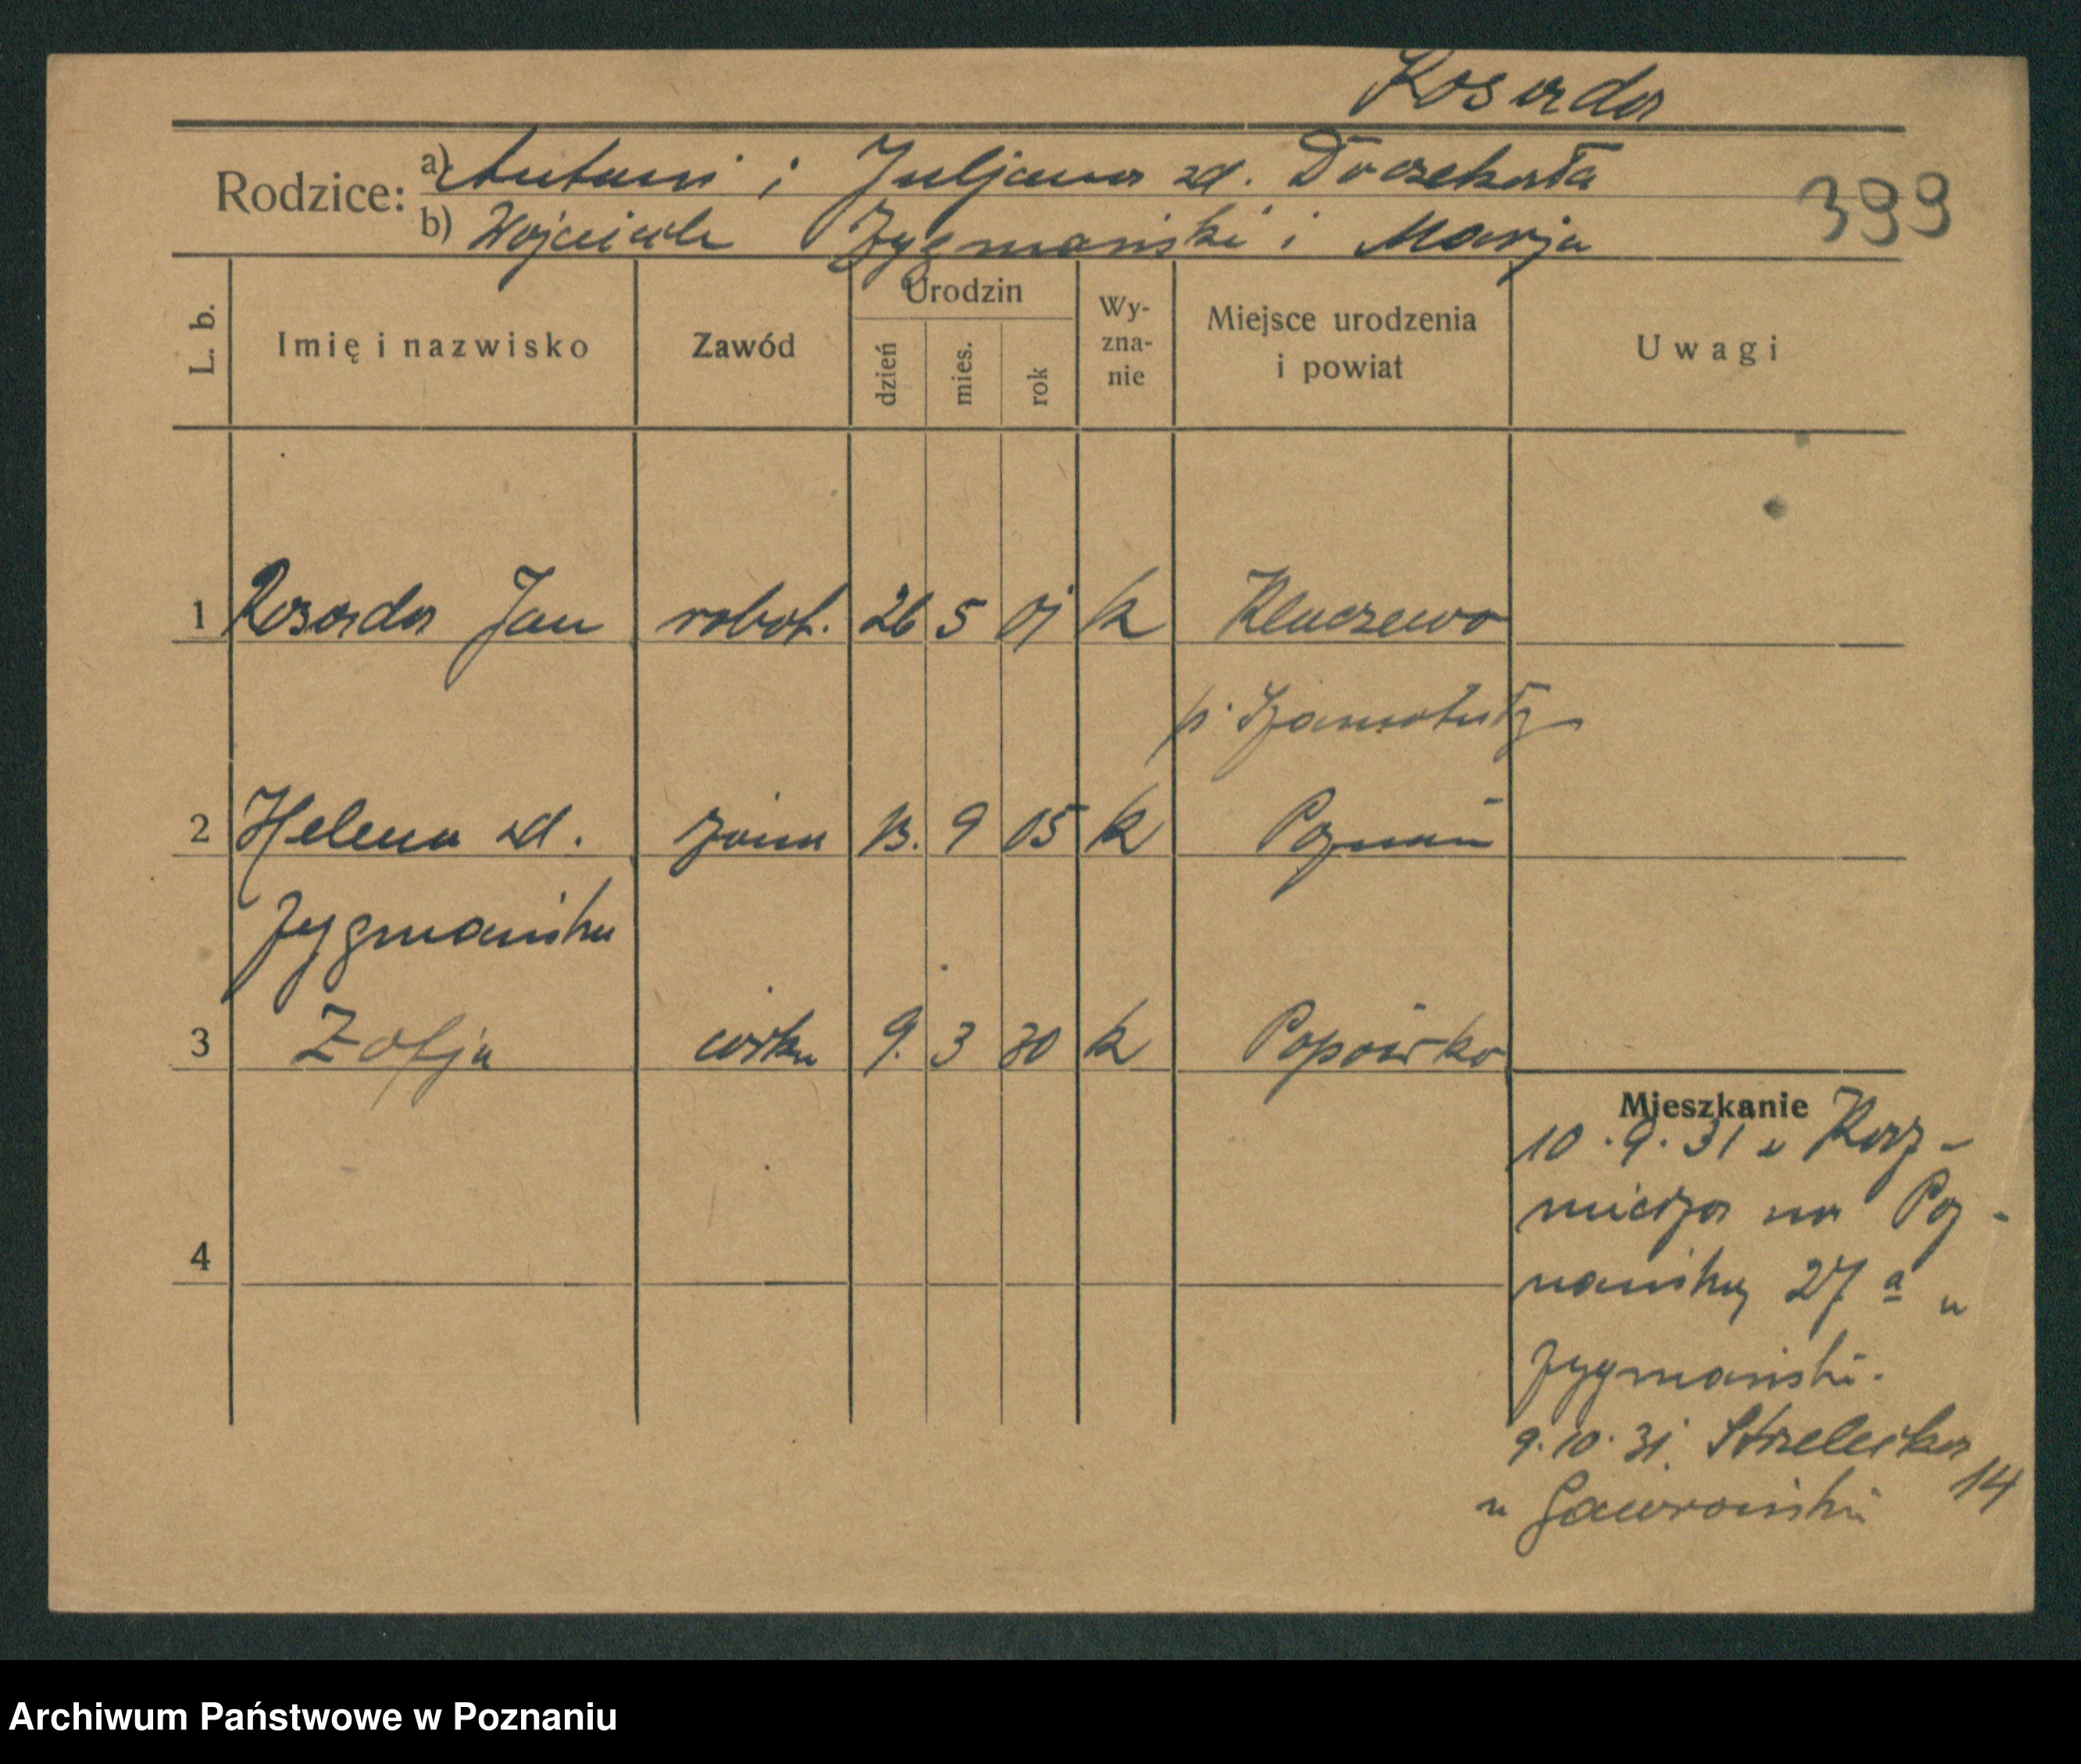 Kosarda
Rodzice: a) Antoni i Juljanna zd. Doczekała
b) Wojciech Zygmański i Marja
399
L. b. Imię i nazwisko Zawód Urodzin dzień mies. rok Wy-zna-nie Miejsce urodzenia i powiat Uwagi
1 Kosarda Jan robot. 26 5 01 k Kluczewo
p. Szamotuły
2 Helena zd. żona 13. 9 05 k Poznań
Zygmańska
3 Zofja córka 9. 3 30 k Popówko
Mieszkanie
10.9.31 z Kaź-
mierza na Poz-
nańską 27 a u
Zygmański.
4
9.10.31. Strzelecka
14
u Gawroński
Archiwum Państwowe w Poznaniu